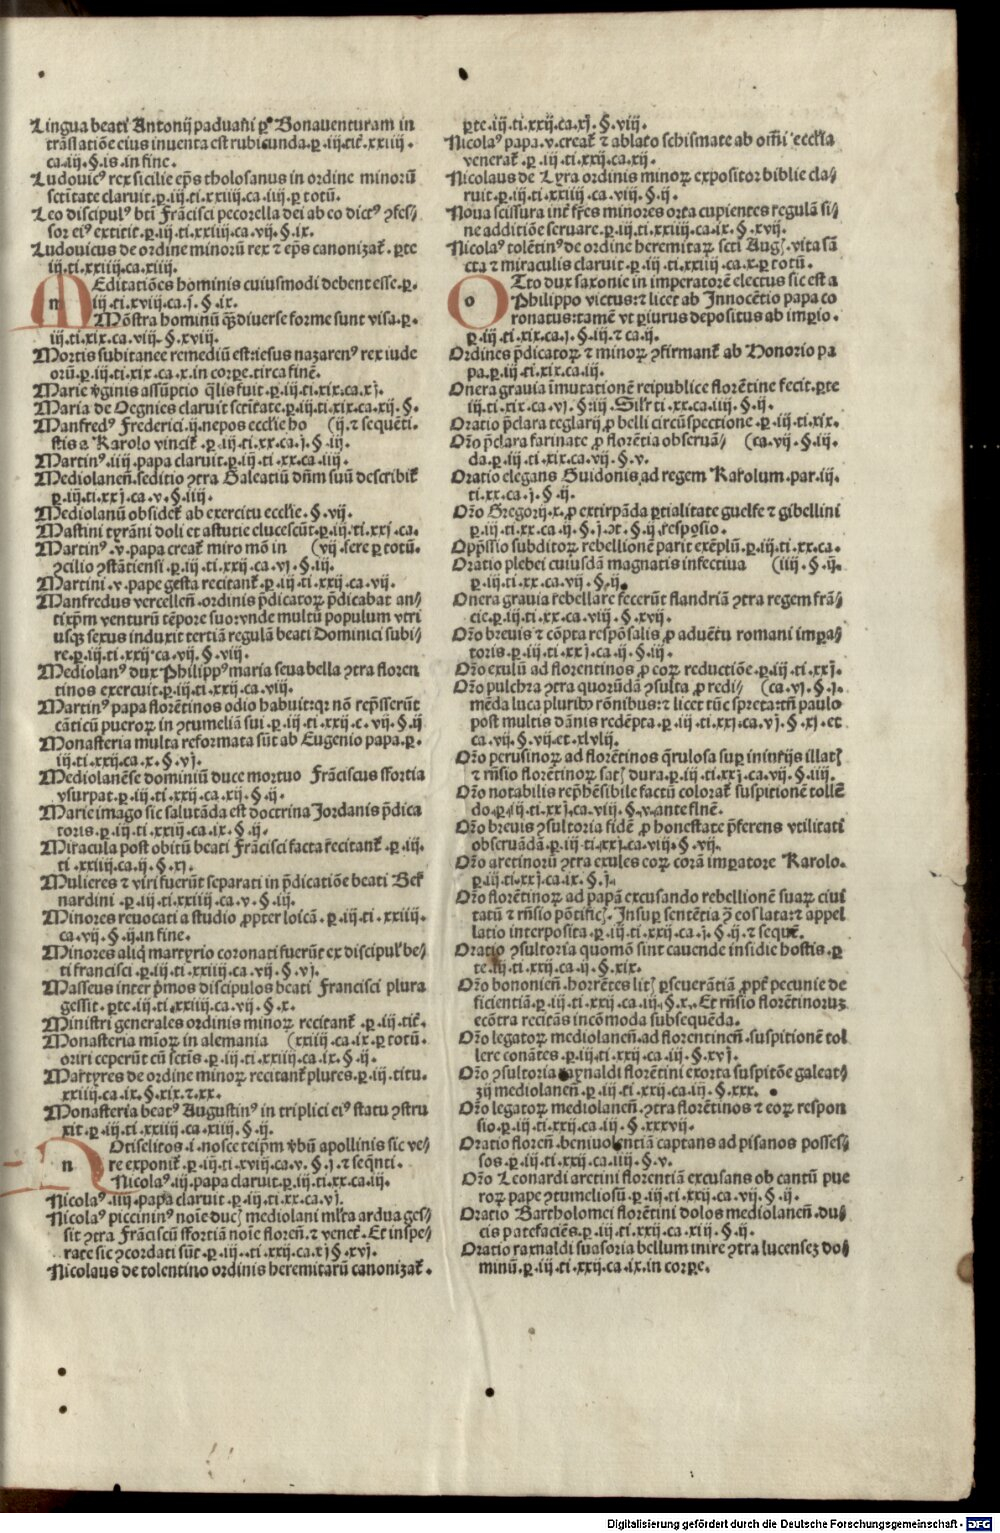 Lingua beati Antonij paduañi ꝑ Bonauenturam in
trãslatiõe eius inuenta est rubicunda.ꝑ.iij.tic̃.xxiiij.
ca.iij.§.is.in fine.
Ludouicꝰ rex sicilie ep̃s tholosanus in ordine minorũ
sc̃titate claruit.ꝑ.iij.ti.xxiiij.ca.iiij.ꝑ totũ.
Leo discipulꝰ bt̃i Frãcisci pecorella dei ab eo dictꝰ ꝯfes⸗
sor eiꝰ extitit.ꝑ.iij.ti.xxiiij.ca.vij.§.ix.
Ludouicus de ordine minorũ rex ⁊ ep̃s canonizat̃.ꝑte
iij.ti.xxiiij.ca.xiiij.
MEditatiões hominis cuiusmodi debent esse.ꝑ.
m iij.ti.xviij.ca.j.§.ix.
Mõstra hominũ q̃ꝫ diuerse forme sunt visa.ꝑ.
iij.ti.xix.ca.viij.§.xviij.
Mortis subitanee remediũ est:iesus nazarenꝰ rex iude
orũ.ꝑ.iij.ti.xix.ca.x.in corꝑe.circa finẽ.
Marie ꝟginis assũptio q̃lis fuit.ꝑ.iij.ti.xix.ca.xj.
Maria de Oegnies claruit sc̃titate.ꝑ.iij.ti.xix.ca.xij.§.
Manfredꝰ Frederici.ij.nepos eccl̃ie ho (ij.⁊ sequẽti.
stis a Karolo vincit̃.ꝑ.iij.ti.xx.ca.j.§.iij.
Martinꝰ.iiij.papa claruit.ꝑ.iij.ti.xx.ca.iiij.
Mediolaneñ.seditio ꝯtra Galeatiũ dñm suũ describit̃
ꝑ.iij.ti.xxj.ca.v.§.iiij.
Mediolanũ obsidet̃ ab exercitu eccl̃ie.§.vij.
Mastini tyrãni doli et astutie elucescũt.ꝑ.iij.ti.xxj.ca.
Martinꝰ.v.papa creat̃ miro mõ in (vij.fere ꝑ totũ.
ꝯcilio ꝯstãtiensi.ꝑ.iij.ti.xxij.ca.vj.§.iij.
Martini.v.pape gesta recitant̃.ꝑ.iij.ti.xxij.ca.vij.
Manfredus vercelleñ.ordinis p̃dicatoꝝ p̃dicabat an⸗
tixp̃m venturũ tẽpore suo:vnde multũ populum vtri
usqꝫ sexus induxit tertiã regulã beati Dominici subi⸗
re.ꝑ.iij.ti.xxij.ca.vij.§.viij.
Mediolanꝰ dux Philippꝰ maria seua bella ꝯtra floren
tinos exercuit.ꝑ.iij.ti.xxij.ca.viij.
Martinꝰ papa florẽtinos odio habuit:qꝛ nõ rep̃sserũt
cãticũ pueroꝝ in ꝯtumeliã sui.ꝑ.iij.ti.xxij.c.vij.§.ij
Monasteria multa reformata sũt ab Eugenio papa.ꝑ.
iij.ti.xxij.ca.x.§.vj.
Mediolanẽse dominiũ duce mortuo Frãciscus sfortia
vsurpat.ꝑ.iij.ti.xxij.ca.xij.§.ij.
Marie imago sic salutãda est doctrina Jordanis p̃dica
toris.ꝑ.iij.ti.xxiij.ca.ix.§.ij.
Miracula post obitũ beati Frãcisci facta recitant̃.ꝑ.iij.
ti.xxiiij.ca.ij.§.xj.
Mulieres ⁊ viri fuerũt separati in p̃dicatiõe beati Ber
nardini.ꝑ.iij.ti.xxiiij.ca.v.§.iij.
Minores reuocati a studio ꝓpter loicã.ꝑ.iij.ti.xxiiij.
ca.vij.§.ij.in fine.
Minores aliq̃ martyrio coronati fuerũt ex discipul̃ be⸗
ti francisci.ꝑ.iij.ti.xxiiij.ca.vij.§.vj.
Masseus inter p̃mos discipulos beati Francisci plura
gessit.ꝑte.iij.ti.xxiiij.ca.vij.§.x.
Ministri generales ordinis minoꝝ recitant̃.ꝑ.iij.tic̃.
Monasteria mĩoꝝ in alemania (xxiiij.ca.ix.ꝑ totũ.
oriri ceperũt cũ sc̃tis.ꝑ.iij.ti.xxiiij.ca.ix.§.ij.
Martyres de ordine minoꝝ recitant̃ plures.ꝑ.iij.titu.
xxiiij.ca.ix.§.xix.⁊.xx.
Monasteria beatꝰ Augustinꝰ in triplici eiꝰ statu ꝯstru
xit.ꝑ.iij.ti.xxiiij.ca.xiij.§.ij.
NOtiselitos.i.nosce teip̃m ꝟbũ apollinis sic ve⸗
n re exponit̃.ꝑ.iij.ti.xviij.ca.v.§.j.⁊ seq̃nti.
Nicolaꝰ.iij.papa claruit.ꝑ.iij.ti.xx.ca.iij.
Nicolaꝰ.iiij.papa claruit.ꝑ.iij.ti.xx.ca.vj.
Nicolaꝰ piccininꝰ noĩe ducꝭ mediolani ml̃ta ardua ges⸗
sit ꝯtra Frãciscũ sfortiã noĩe floreñ.⁊ venet̃.Et inspe⸗
rate sic ꝯcordati sũt.ꝑ.iij.ti.xxij.ca.xj§.xvj.
Nicolaus de tolentino ordinis heremitarũ canonizat̃.
ꝑte.iij.ti.xxij.ca.xj.§.viij.
Nicolaꝰ papa.v.creat̃ ⁊ ablato schismate ab om̃i eccl̃ia
venerat̃.ꝑ.iij.ti.xxij.ca.xij.
Nicolaus de Lyra ordinis minoꝝ expositor biblie cla⸗
ruit.ꝑ.iij.ti.xxiiij.ca.viij.§.ij.
Noua scissura int̃ fr̃es minores orta cupientes regulã si⸗
ne additiõe seruare.ꝑ.iij.ti.xxiiij.ca.ix.§.xvij.
Nicolaꝰ tolẽtinꝰ de ordine heremitaꝝ sc̃ti Augꝭ.vita sã
cta ⁊ miraculis claruit.ꝑ.iij.ti.xxiiij.ca.x.ꝑ totũ.
OTto dux saxonie in imperatorẽ electus sic est a
o Philippo victus:⁊ licet ab Innocẽtio papa co
ronatus:tamẽ vt ꝑiurus depositus ab imꝑio.
ꝑ.iij.ti.xix.ca.j.§.iij.⁊ ca.ij.
Ordines p̃dicatoꝝ ⁊ minoꝝ ꝯfirmant̃ ab Honorio pa
pa.ꝑ.iij.ti.xix.ca.iij.
Onera grauia ĩmutationẽ reipublice florẽtine fecit.ꝑte
iij.ti.xix.ca.vj.§.iij.Sil̃r ti.xx.ca.iiij.§.ij.
Oratio p̃clara teglarij ꝓ belli circũspectione.ꝑ.iij.ti.xix.
Or̃o p̃clara farinate ꝓ florẽtia obseruã⸗ (ca.vij.§.iij.
da.ꝑ.iij.ti.xix.ca.vij.§.v.
Oratio elegans Guidonis ad regem Karolum.par.iij.
ti.xx.ca.j.§.ij.
Or̃o Gregorij.x.ꝓ extirpãda ꝑtialitate guelfe ⁊ gibellini
ꝑ.iij.ti.xx.ca.ij.§.j.⁊.§.ij.respõsio.
Opp̃ssio subditoꝝ rebellionẽ parit exẽplũ.ꝑ.iij.ti.xx.ca.
Oratio plebei cuiusdã magnatis infectiua (iiij.§.ij.
ꝑ.iij.ti.xx.ca.vij.§.ij.
Onera grauia rebellare fecerũt flandriã ꝯtra regem frã⸗
cie.ꝑ.iij.ti.xx.ca.viij.§.xvij.
Or̃o breuis ⁊ cõpta respõsalis ꝓ aduẽtu romani imꝑa⸗
toris.ꝑ.iij.ti.xxj.ca.ij.§.iij.
Or̃o exulũ ad florentinos ꝓ eoꝝ reductiõe.ꝑ.iij.ti.xxj.
Or̃o pulchra ꝯtra quorũdã ꝯsulta ꝓ redi⸗ (ca.vj.§.j.
mẽda luca pluribꝰ rõnibus:⁊ licet tũc spreta:tñ paulo
post multis dãnis redẽpta.ꝑ.iij.ti.xxj.ca.vj.§.xj.et
ca.vij.§.vij.et.xlvij.
Or̃o perusinoꝝ ad florẽtinos q̃rulosa suꝑ iniurijs illatꝭ
⁊ rñsio florẽtinoꝝ satꝭ dura.ꝑ.iij.ti.xxj.ca.vij.§.iiij.
Or̃o notabilis rep̃hẽsibile factũ colorat̃ suspitionẽ tollẽ
do.ꝑ.iij.ti.xxj.ca.viij.§.v.ante finẽ.
Or̃o breuis ꝯsultoria fidẽ ꝓ honestate p̃ferens vtilitati
obseruãdã.ꝑ.iij.ti.xxj.ca.viij.§.vij.
Or̃o aretinorũ ꝯtra exules eoꝝ corã imꝑatore Karolo.
ꝑ.iij.ti.xxj.ca.ix.§.j.
Or̃o florẽtinoꝝ ad papã excusando rebellionẽ suaꝝ ciui
tatũ ⁊ rñsio põtificꝭ.Insuꝑ sentẽtia ꝯ̃ eos lata:⁊ appel
latio interposita.ꝑ.iij.ti.xxij.ca.j.§.ij.⁊ sequẽ.
Oratio ꝯsultoria quomõ sint cauende insidie hostis.ꝑ
te.iij.ti.xxij.ca.ij.§.xix.
Or̃o bononieñ.horrẽtes litꝭ ꝑseuerãtiã ꝓpt̃ pecunie de
ficientiã.ꝑ.iij.ti.xxij.ca.iij.§.x.Et rñsio florẽtinoruꝫ
ecõtra recitãs incõmoda subsequẽda.
Or̃o legatoꝝ mediolaneñ.ad florentineñ.suspitionẽ tol
lere conãtes.ꝑ.iij.ti.xxij.ca.iij.§.xvj.
Or̃o ꝯsultoria raynaldi florẽtini exorta suspitõe galeat⸗
zij mediolaneñ.ꝑ.iij.ti.xxij.ca.iij.§.xxx.
Or̃o legatoꝝ mediolaneñ.ꝯtra florẽtinos ⁊ eoꝝ respon
sio.ꝑ.iij.ti.xxij.ca.iij.§.xxxvij.
Oratio floreñ.beniuolentiã captans ad pisanos posses⸗
sos.ꝑ.iij.ti.xxij.ca.iiij.§.v.
Or̃o Leonardi aretini florentiã excusans ob cantũ pue
roꝝ pape ꝯtumeliosũ.ꝑ.iij.ti.xxij.ca.vij.§.ij.
Oratio Bartholomei florẽtini dolos mediolaneñ.du⸗
cis patefaciẽs.ꝑ.iij.ti.xxij.ca.xiij.§.ij.
Oratio raynaldi suasoria bellum inire ꝯtra lucenseꝫ do⸗
minũ.ꝑ.iij.ti.xxij.ca.ix.in corꝑe.
Digitalisierung gefördert durch die Deutsche Forschungsgemeinschaft - DFG